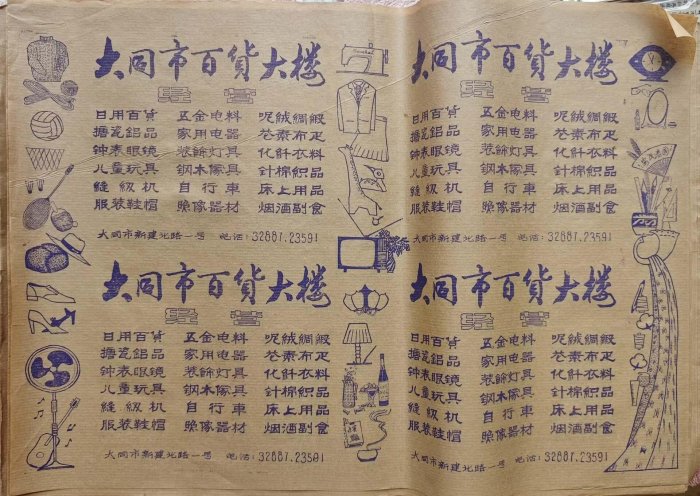 大同市百貨大楼
经营
日用百貨 五金电料 呢絨綢緞
搪瓷鋁品 家用电器 花素布疋
钟表眼镜 装飾灯具 化紆衣料
儿童玩具 钢木傢具 針棉織品
縫級机 自行車 床上用品
服装鞋帽 器材 烟酒副食
大同市新建北路一号 电话:32887.23591
大同市百貨大楼
经营
日用百貨 五金电料 呢絨綢緞
搪瓷鋁品 家用电器 花素布疋
钟表眼镜 装飾灯具 化紆衣料
儿童玩具 钢木傢具 針棉織品
縫級机 自行車 床上用品
服装鞋帽 器材 烟酒副食
大同市新建北路一号 电话:32887.23591
大同市百貨大楼
经营
日用百貨 五金电料 呢絨綢緞
搪瓷鋁品 家用电器 花素布疋
钟表眼镜 装飾灯具 化紆衣料
儿童玩具 钢木傢具 針棉織品
縫級机 自行車 床上用品
服装鞋帽 器材 烟酒副食
大同市新建北路一号 电话:32887.23591
大同市百貨大楼
经营
日用百貨 五金电料 呢絨綢緞
搪瓷鋁品 家用电器 花素布疋
钟表眼镜 装飾灯具 化紆衣料
儿童玩具 钢木傢具 針棉織品
縫級机 自行車 床上用品
服装鞋帽 器材 烟酒副食
大同市新建北路一号 电话:32887.23591